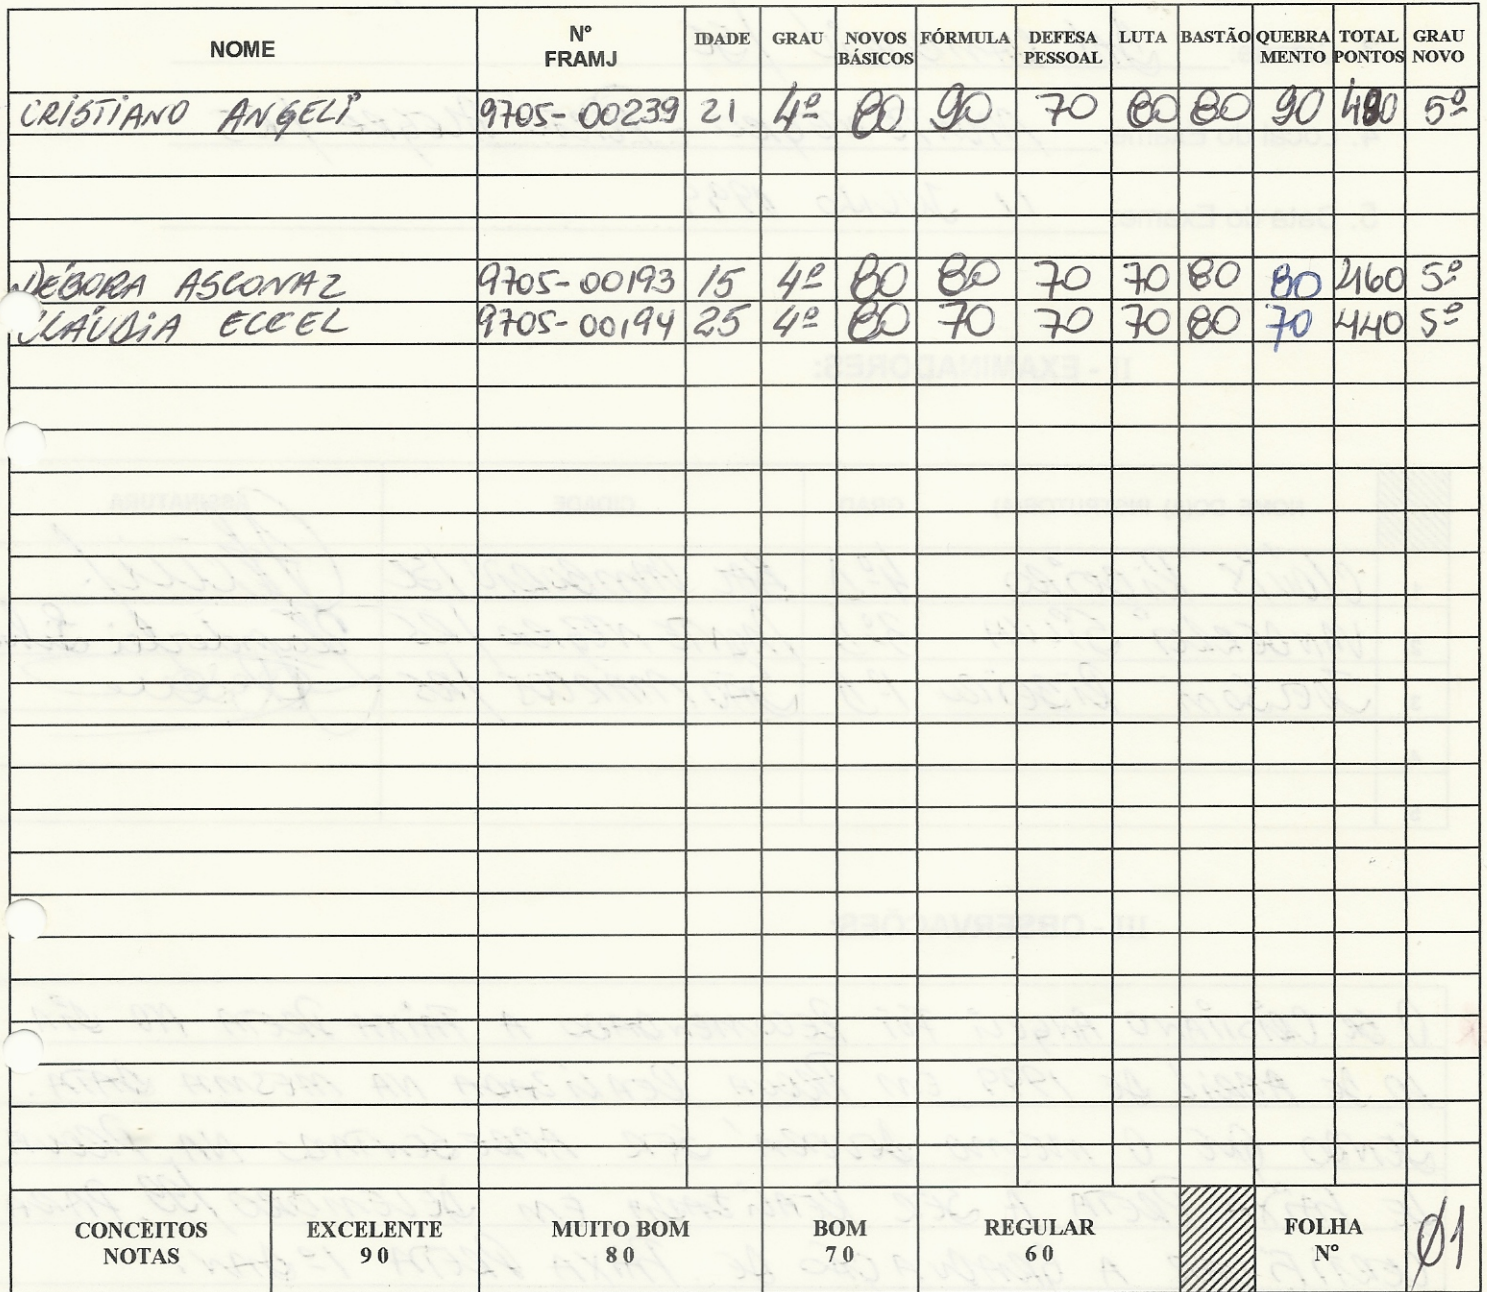 NOME Nº FRAMJ IDADE GRAU NOVOS BÁSICOS FÓRMULA DEFESA PESSOAL LUTA BASTÃO QUEBRA MENTO TOTAL PONTOS GRAU NOVO
CRISTIANO ANGELI 9705-00239 21 4º 80 90 70 80 80 90 490 5º
DÉBORA ASCONAZ 9705-00193 15 4º 80 80 70 70 80 80 460 5º
CLAÚDIA ECCEL 9705-00194 25 4º 80 70 70 70 80 70 440 5º
CONCEITOS NOTAS EXCELENTE 90 MUITO BOM 80 BOM 70 REGULAR 60 FOLHA Nº 01